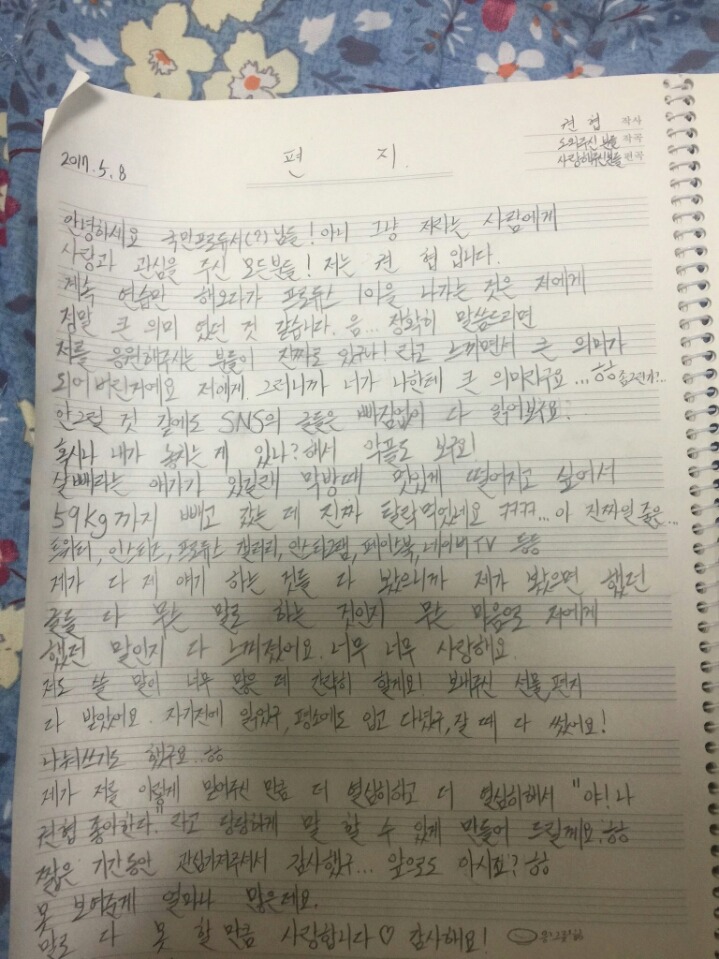 권 협 작사
2017. 5. 8 편 지. 도와주신 분들 작곡
사랑해주신분들 편곡
안녕하세요 국민프로듀서(?)님들! 아니 그냥 저라는 사람에게
사랑과 관심을 주신 모든분들! 저는 권 협 입니다.
계속 연습만 해오다가 프로듀스 101을 나가는 것은 저에게
정말 큰 의미 였던 것 같습니다. 음... 정확히 말씀드리면
저를 응원해주시는 분들이 진짜로 있구나! 라고 느끼면서 큰 의미가
되어버린거에요 저에게. 그러니까 너가 나한테 큰 의미라구요...ㅎㅎ 좀그런가?..
안그럴 것 같에도 SNS의 글들은 빠짐없이 다 읽어보구요?
혹시나 내가 놓치는 게 있나? 해서 악플도 보구요!
살빼라는 얘기가 있길래 막방때 멋있게 떨어지고 싶어서
59kg까지 빼고 갔는 데 진짜 탈락먹었네요 ㅋㅋㅋ... 아 진짜인줄은...
트위터, 인스티즈, 프로듀스 갤러리, 인스타그램, 페이스북, 네이버TV 등등
제가 다 제 얘기 하는 것들 다 봤으니까 제가 봤으면 했던
글들 다 무슨 말로 하는 것인지 무슨 마음으로 저에게
했던 말인지 다 느껴졌어요. 너무 너무 사랑해요.
저도 쓸 말이 너무 많은 데 간략히 할게요! 보내주신 선물, 편지
다 받았어요. 자기전에 읽었구, 평소에도 입고 다녔구, 잘 때 다 썼어요!
나눠쓰기도 했구요..ㅎㅎ
제가 저를 이렇게 믿어주신 만큼 더 열심히하고 더 열심히해서 "야! 나
권협 좋아한다." 라고 당당하게 말 할 수 있게 만들어 드릴께요.ㅎㅎ
짧은 기간동안 관심가져주셔서 감사했구... 앞으로도 아시죠? ㅎㅎ
못 보여준게 얼마나 많은데요.
말로 다 못 할 만큼 사랑합니다♡ 감사해요!